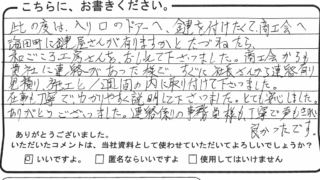 こちらに、お書きください。
此の度は、入り口のドアーへ、鍵を付けたくて、商工会へ
諸田町に鍵屋さんが有りますかとたづねたら、
和ごころ工房さんを、おしえて下さいました。商工会からも
貴社に連絡があった様で、すぐに社長さんから連絡有り
見積り、発注と/週間の内に取り付けて下さいました。
仕事も丁寧でわかりやすく説明して下さいました。とても安心しました。
ありがとうございました。連絡係りの事務員様も丁寧で安心されて
良かったです。
ありがとうございました。
いただいたコメントは、当社資料として使わせていただいてよろしいでしょうか?
いいですよ。 匿名ならいいですよ 使用してはいけません